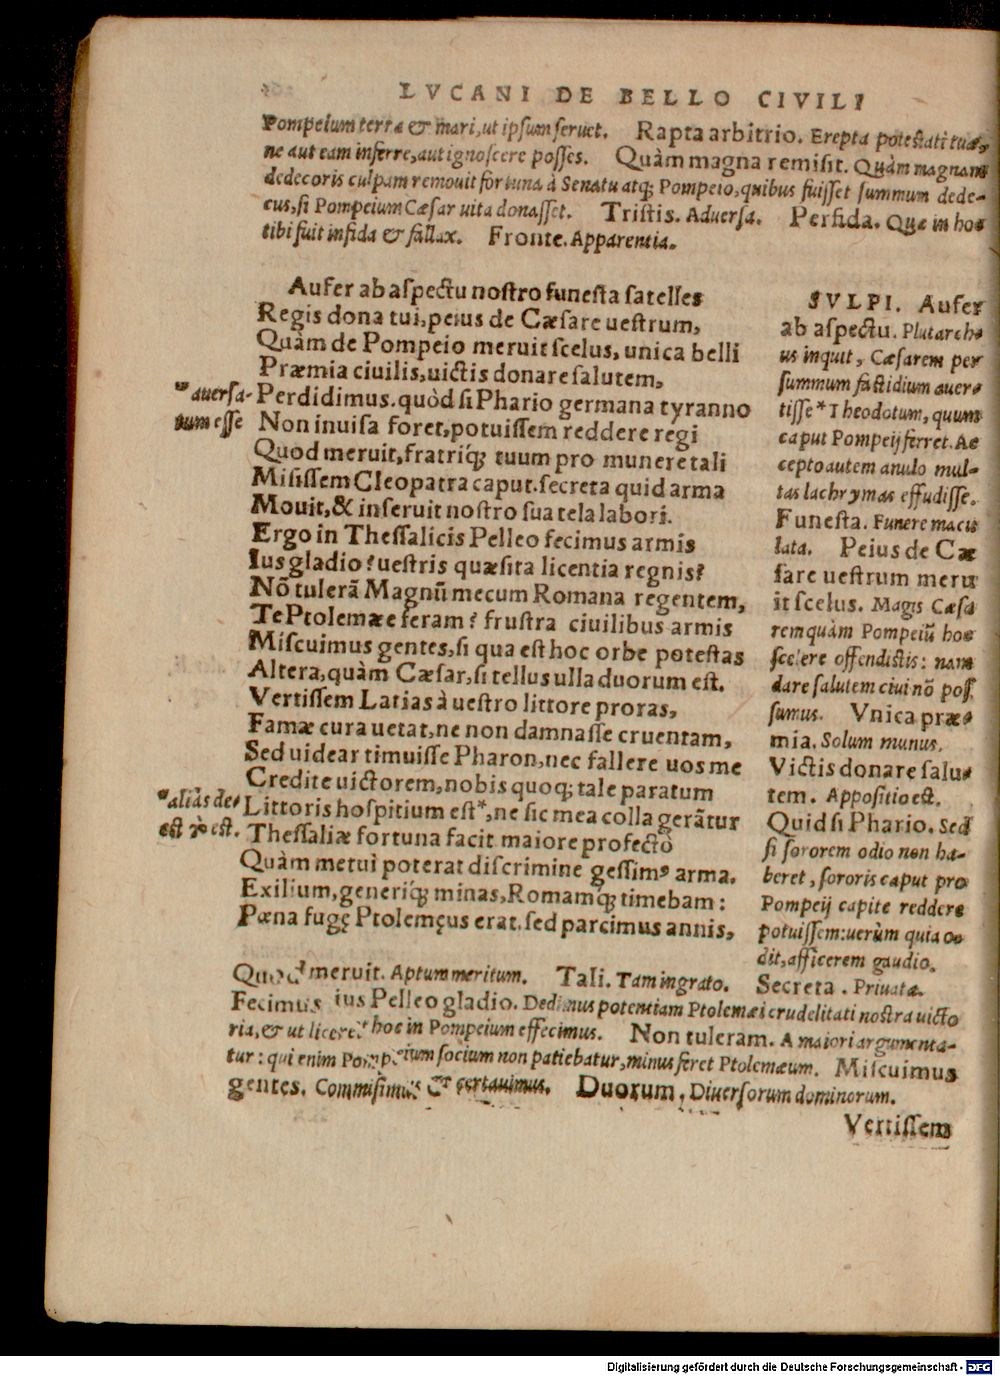 LVCANI DE BELLO CIVILI
Pompeium terra & mari, ut ipsum seruet. Rapta arbitrio. Erepta potestati tuæ,
ne aut eam inferre, aut ignoscere posses. Quàm magna remisit. Quàm magnam
dedecoris culpam remouit fortuna à Senatu atq; Pompeio, quibus fuisset summum dede-
cus, si Pompeium Cæsar uita donasset. Tristis. Aduersa. Perfida. Quæ in hos
tibi fuit infida & fallax. Fronte. Apparentia.
Aufer ab aspectu nostro funesta satelles
Regis dona tui, peius de Cæsare uestrum,
Quàm de Pompeio meruit scelus, unica belli
Præmia ciuilis, uictis donare salutem,
Perdidimus. quòd si Phario germana tyranno
Non inuisa foret, potuissem reddere regi
Quod meruit, fratriq́; tuum pro munere tali
Misissem Cleopatra caput. secreta quid arma
Mouit, & inseruit nostro sua tela labori.
Ergo in Thessalicis Pelleo fecimus armis
Ius gladio? uestris quæsita licentia regnis?
Nō tulerā Magnū mecum Romana regentem,
Te Ptolemæe feram? frustra ciuilibus armis
Miscuimus gentes, si qua est hoc orbe potestas
Altera, quàm Cæsar, si tellus ulla duorum est.
Vertissem Latias à uestro littore proras,
Famæ cura uetat, ne non damnasse cruentam,
Sed uidear timuisse Pharon, nec fallere uos me
Credite uictorem, nobis quoq; tale paratum
Littoris hospitium est*, ne sic mea colla gerātur
Thessaliæ fortuna facit maiore profectò
Quàm metui poterat discrimine gessimꝰ arma.
Exilium, generiq́; minas, Romamq́; timebam:
Pœna fugę Ptolemęus erat. sed parcimus annis,
*auersa-
tum esse
*aliàs de-
est τὸ est.
SVLPI. Aufer
ab aspectu. Plutarch-
us inquit, Cæsarem per
summum fastidium auer-
tisse* Theodotum, quum
caput Pompeij ferret. Ac
cepto autem anulo mul-
tas lachrymas effudisse.
Funesta. Funere macu
lata. Peius de Cæ
sare uestrum meru
it scelus. Magis Cæsa
rem quàm Pompeiū hoc
scelere offendistis: nam
dare salutem ciui nō pos
sumus. Vnica præ-
mia. Solum munus.
Victis donare salu-
tem. Appositio est.
Quid si Phario. Sed
si sororem odio non ha-
beret, sororis caput pro
Pompeij capite reddere
potuissem: uerùm quia o-
dit, afficerem gaudio.
Quod meruit. Aptum meritum. Tali. Tam ingrato. Secreta. Priuata.
Fecimus ius Pelleo gladio. Dedimus potentiam Ptolemæi crudelitati nostra uicto
ria, & ut liceret hoc in Pompeium effecimus. Non tuleram. A maiori argumenta-
tur: qui enim Pompeium socium non patiebatur, minus feret Ptolemæum. Miscuimus
gentes. Commisimus & certauimus. Duorum. Diuersorum dominorum.
Vertissem
Digitalisierung gefördert durch die Deutsche Forschungsgemeinschaft - DFG